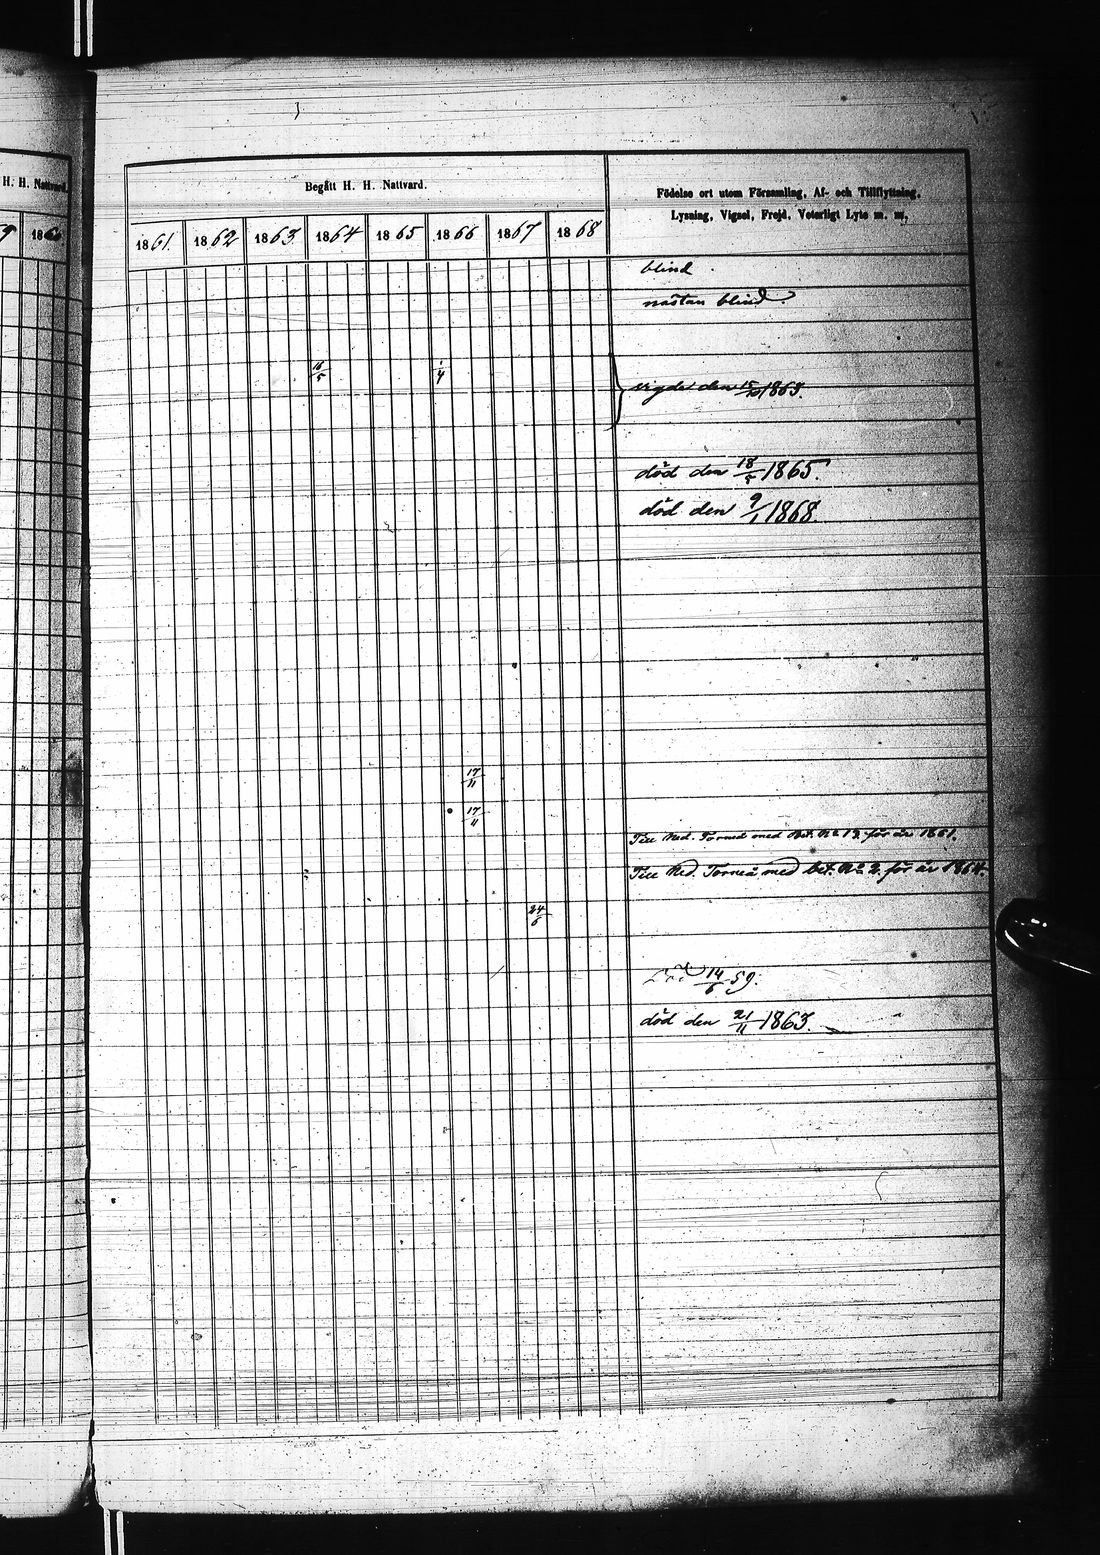 H. H. Nattvard.
9 1860
Begått H. H. Nattvard.
Födelse ort utom Församling, Af- och Tillflyttning,
Lysning, Vigsel, Frejd, Veterligt Lyte m. m.
1861 1862 1863 1864 1865 1866 1867 1868
blind
nästan blind.
vigde den 15/10 1863.
död den 18/5 1865.
död den 9/1 1868.
17/11
17/11
Till Ned. Torneå med Bet. No 19 för år 1861.
Till Ned. Torneå med bet. No 2. för år 1864.
24/6
14/6 59.
död den 21/11 1863.